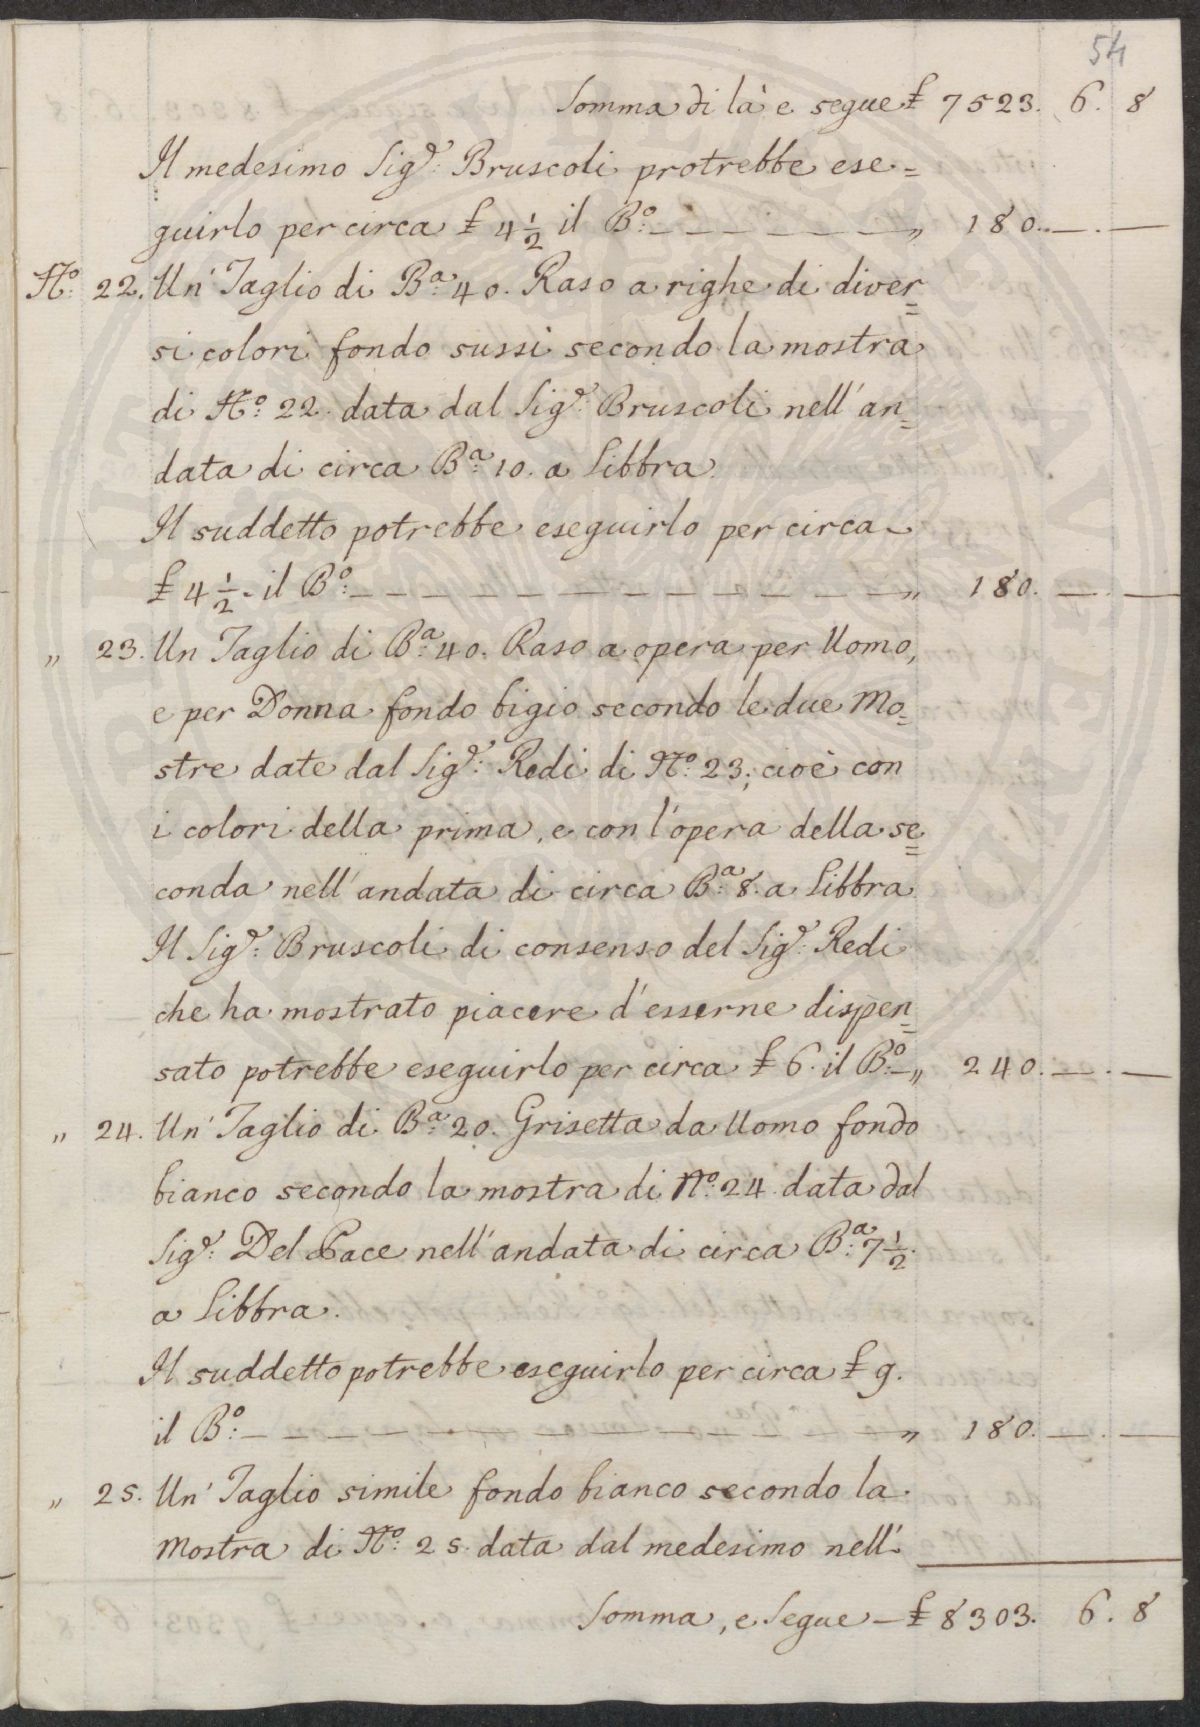 54
Somma di là e segue £ 7523. 6. 8
Il medesimo Sig.r Bruscoli protrebbe ese=
guirlo per circa £ 4 1/2 il B.o — — — — — — — „ 180. — . —
N.o 22. Un' Taglio di B.a 40. Raso a righe di diver=
si colori fondo sussi secondo la mostra
di N.o 22. data dal Sig.r Bruscoli nell'an=
data di circa B.a 10. a Libbra.
Il suddetto potrebbe eseguirlo per circa
£ 4 1/2. il B.o — — — — — — — — — — — — „ 180. — . —
„ 23. Un Taglio di B.a 40. Raso a opera per Uomo,
e per Donna fondo bigio secondo le due Mo=
stre date dal Sig.r Redi di N.o 23; cioè con
i colori della prima, e con l'opera della se=
conda nell'andata di circa B.a 8. a Libbra.
Il Sig.r Bruscoli di consenso del Sig.r Redi
che ha mostrato piacere d'esserne dispen=
sato potrebbe eseguirlo per circa £ 6. il B.o — „ 240. — . —
„ 24. Un' Taglio di B.a 20. Grisetta da Uomo fondo
bianco secondo la mostra di N.o 24. data dal
Sig.r Del Pace nell'andata di circa B.a 7 1/2.
a Libbra.
Il suddetto potrebbe eseguirlo per circa £ 9.
il B.o — — — — — — — — — — — — — — „ 180. — . —
„ 25. Un' Taglio simile fondo bianco secondo la
Mostra di N.o 25. data dal medesimo nell'
Somma, e Segue — £ 8303. 6. 8